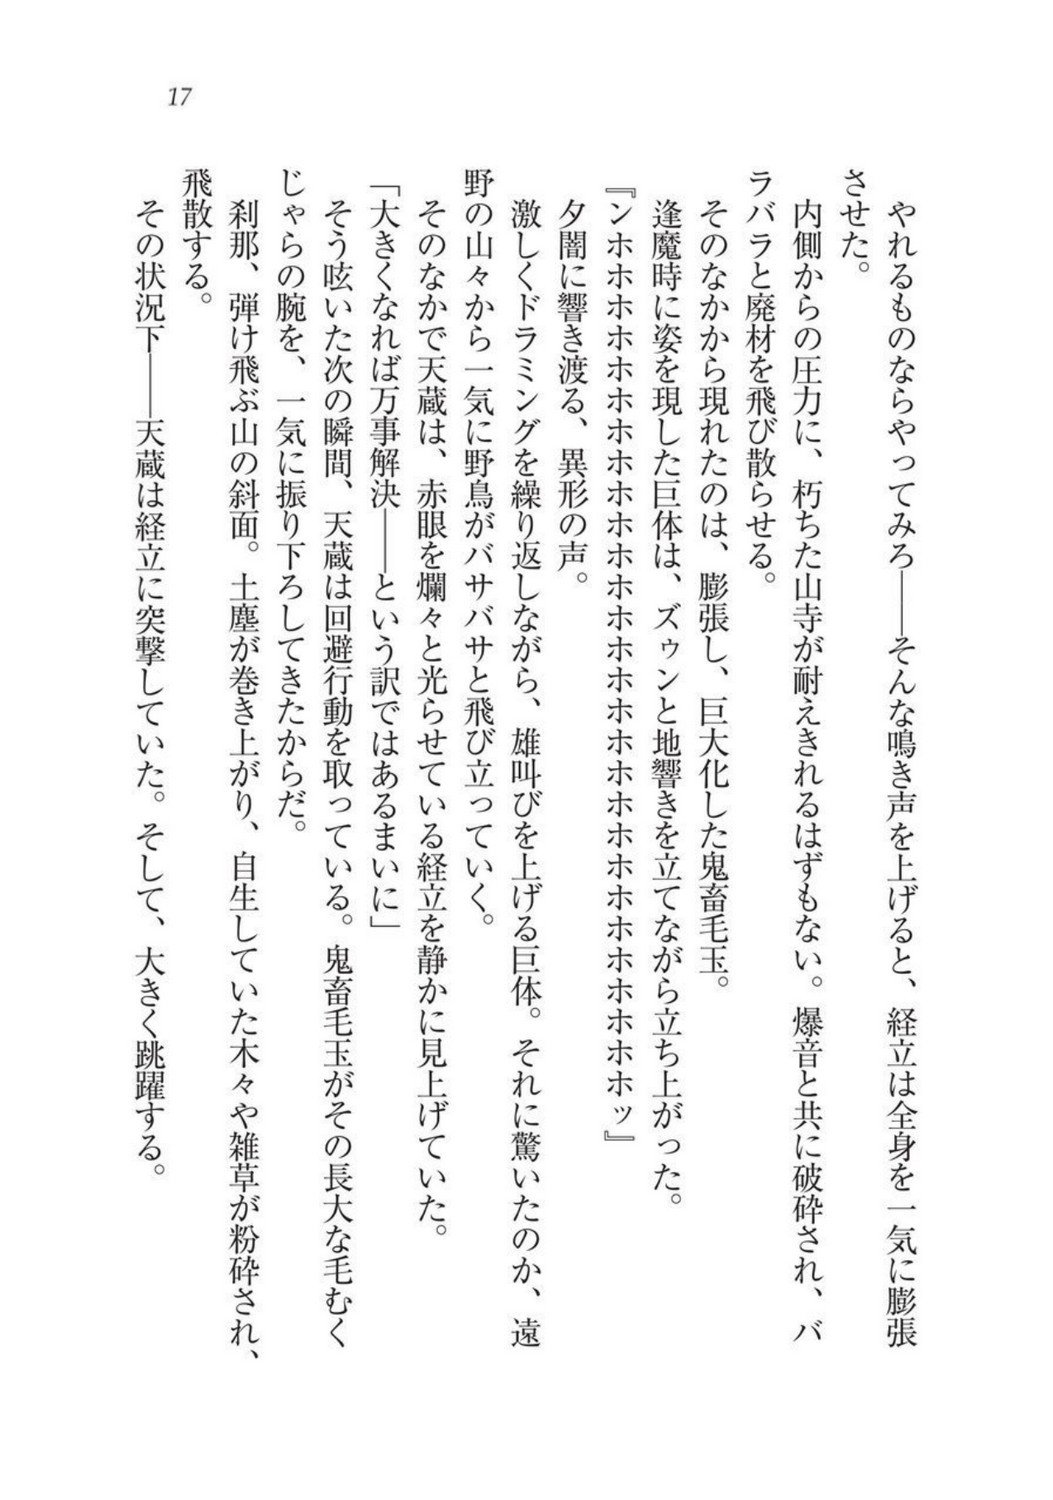 17
　やれるものならやってみろ――そんな鳴き声を上げると、経立は全身を一気に膨張
させた。
　内側からの圧力に、朽ちた山寺が耐えきれるはずもない。爆音と共に破砕され、バ
ラバラと廃材を飛び散らせる。
　そのなかから現れたのは、膨張し、巨大化した鬼畜毛玉。
　逢魔時に姿を現した巨体は、ズゥンと地響きを立てながら立ち上がった。
『ンホホホホホホホホホホホホホホホホホホホホホホホホホホホホッ』
　夕闇に響き渡る、異形の声。
　激しくドラミングを繰り返しながら、雄叫びを上げる巨体。それに驚いたのか、遠
野の山々から一気に野鳥がバサバサと飛び立っていく。
　そのなかで天蔵は、赤眼を爛々と光らせている経立を静かに見上げていた。
「大きくなれば万事解決――という訳ではあるまいに」
　そう呟いた次の瞬間、天蔵は回避行動を取っている。鬼畜毛玉がその長大な毛むく
じゃらの腕を、一気に振り下ろしてきたからだ。
　刹那、弾け飛ぶ山の斜面。土塵が巻き上がり、自生していた木々や雑草が粉砕され、
飛散する。
　その状況下――天蔵は経立に突撃していた。そして、大きく跳躍する。